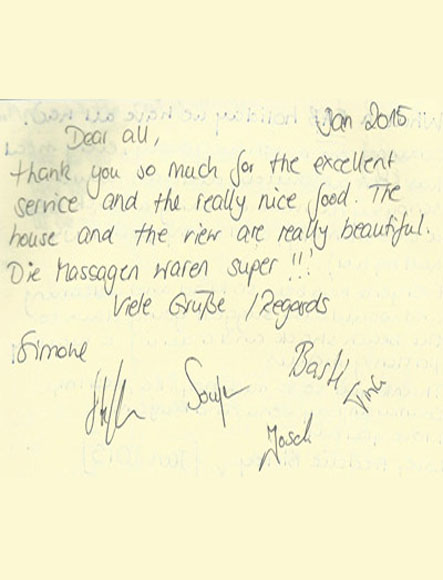 Jan 2015
Dear all,
thank you so much for the excellent
service and the really nice food. The
house and the view are really beautiful.
Die Massagen waren super !!!
Viele Grüße / Regards
Simone
Basti
Tina
Josch